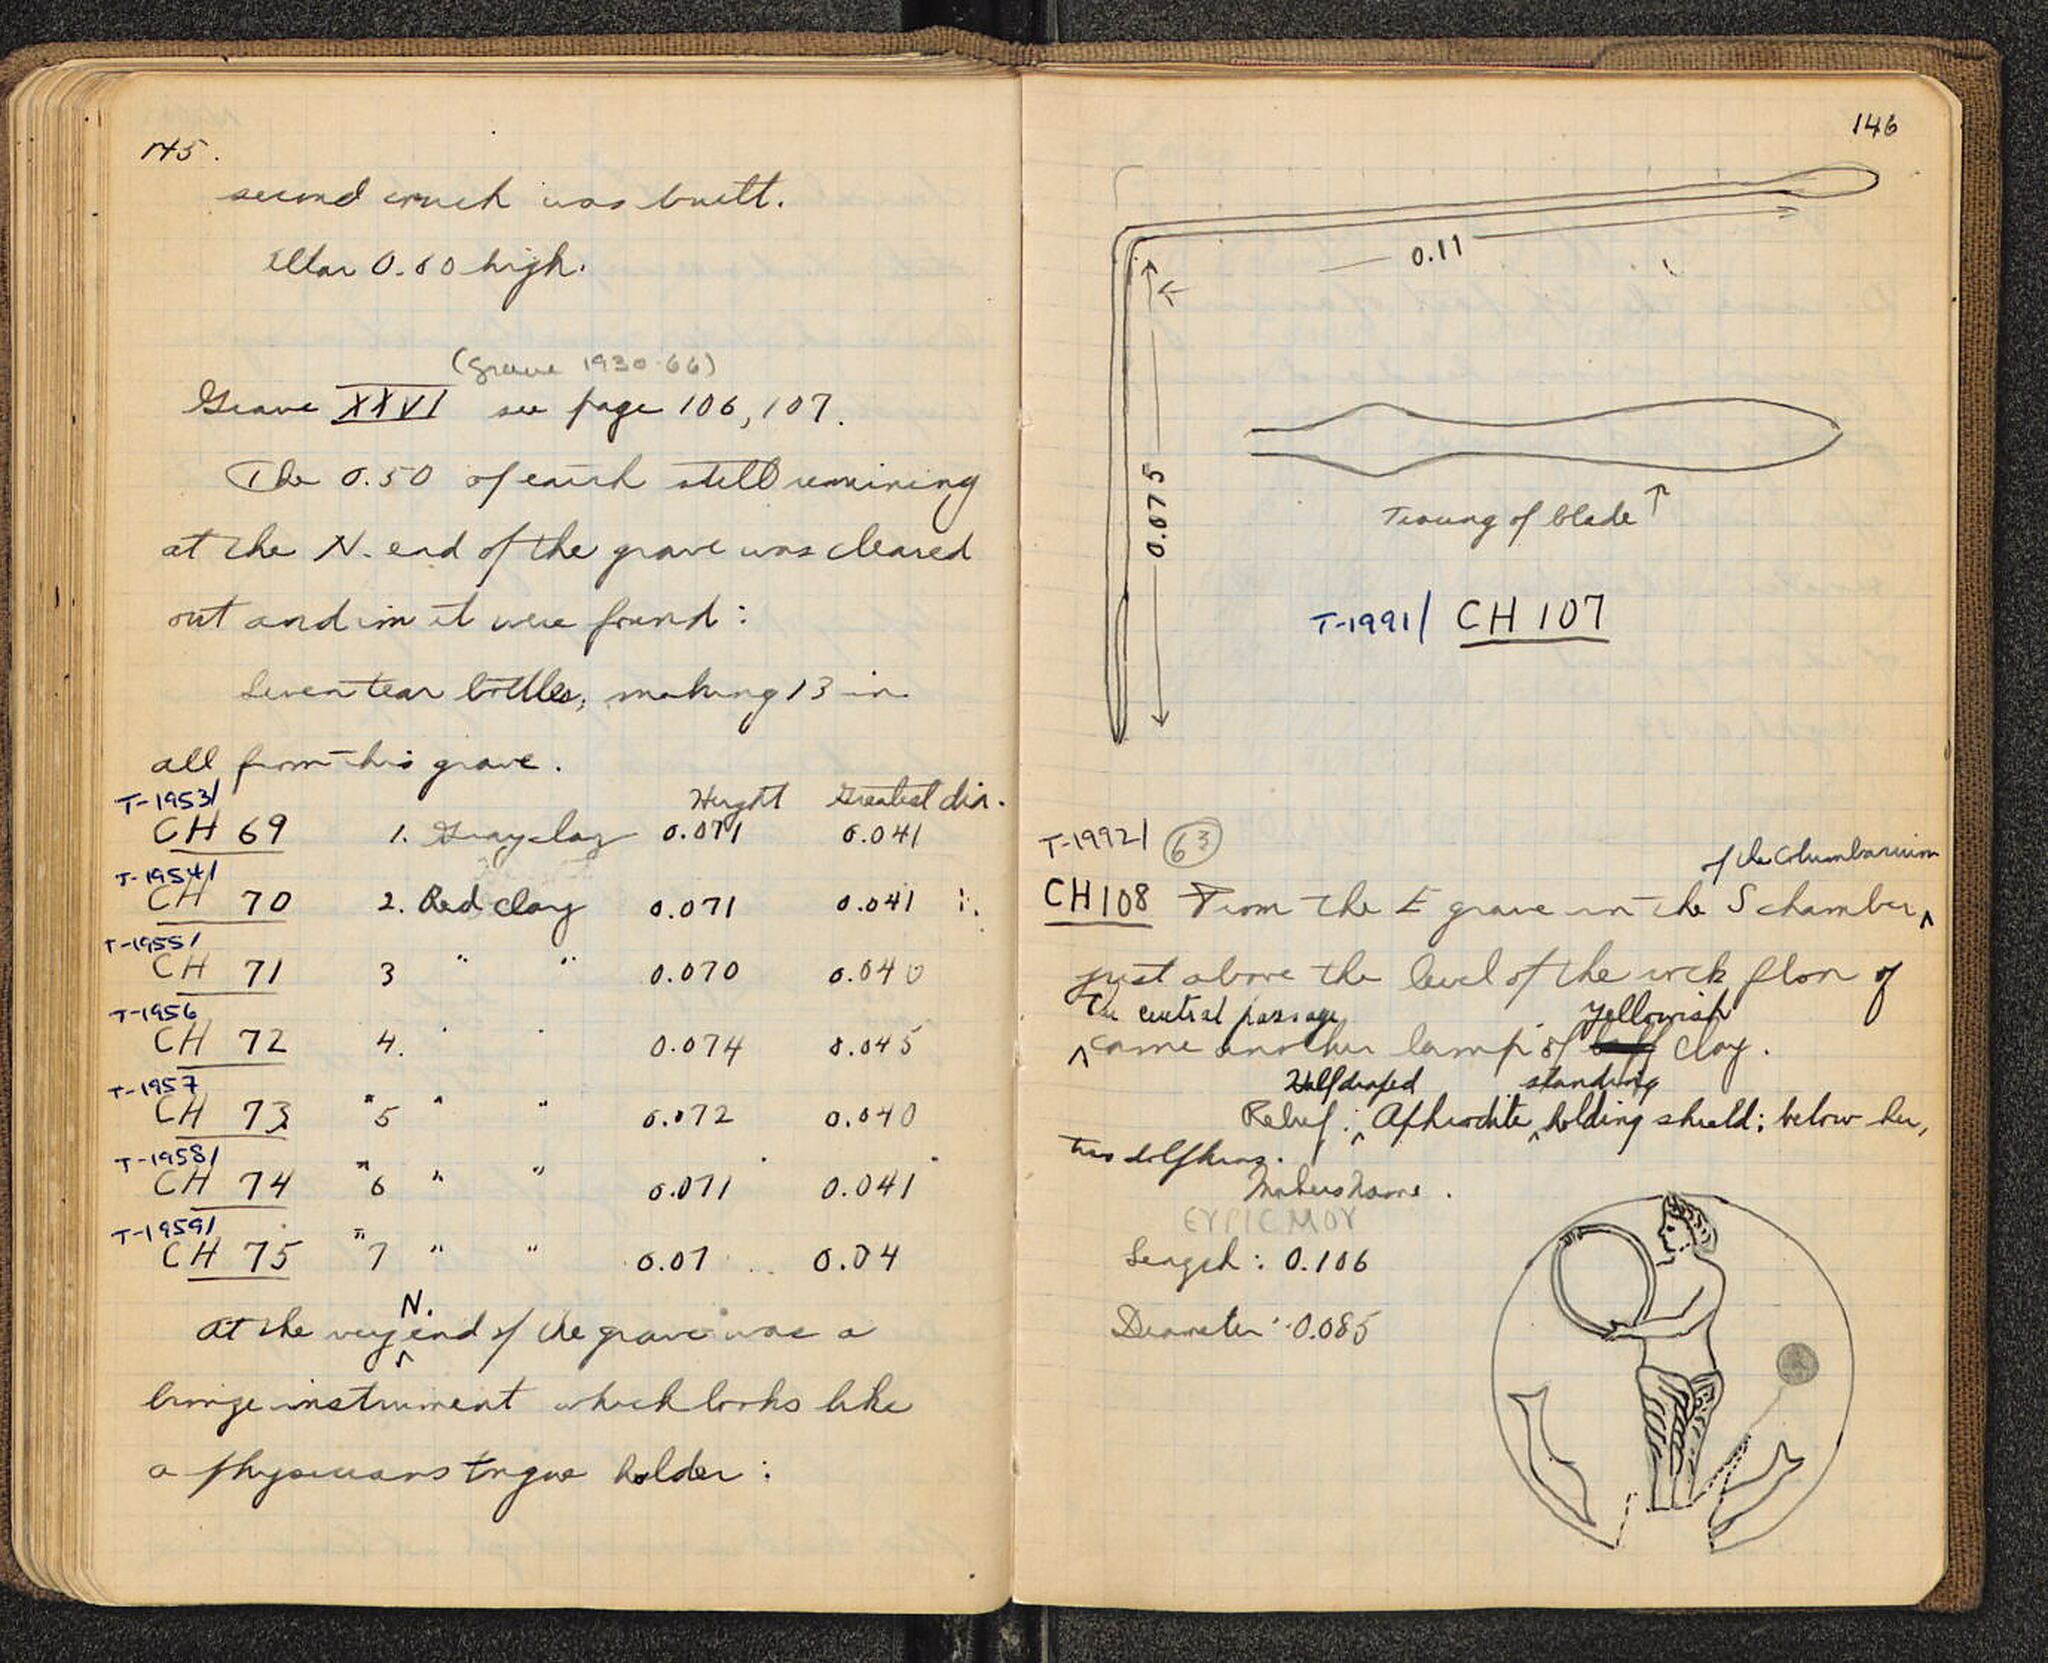 145.
second church was built.
Altar 0.60 high.
(Grave 1930-66)
Grave XXVI see page 106, 107.
The 0.50 of earth still remining
at the N. end of the grave was cleared
out and in it were found:
Seven tear bottles, making 13 in
all from this grave.
Height Greatest dia.
T-1953/
CH 69 1. Gray clay 0.071 0.041
T-1954/
CH 70 2. Red clay 0.071 0.041
T-1955/
CH 71 3 " " 0.070 0.040
T-1956
CH 72 4. " " 0.074 0.045
T-1957
CH 73 " 5 " " 0.072 0.040
T-1958/
CH 74 " 6 " " 0.071 0.041
T-1959/
CH 75 " 7 " " 0.07 0.04
N.
At the very ^ end of the grave was a
bronze instrument which looks like
a physicians tongue holder:
146
0.11
0.075
Tracing of blade ↑
T-1991/ CH 107
T-1992/ 63
of the Columbarium
CH 108 From the E grave in the S chamber ^
just above the level of the rock floor of
the central passage yellowish
^ came another lamp of buff clay.
Half draped standing
Relief: ^ Aphrodite ^ holding shield; below her,
two dolphins.
Makers name.
ΕΥΡΙCΜΟΥ
Length: 0.106
Diameter: 0.085